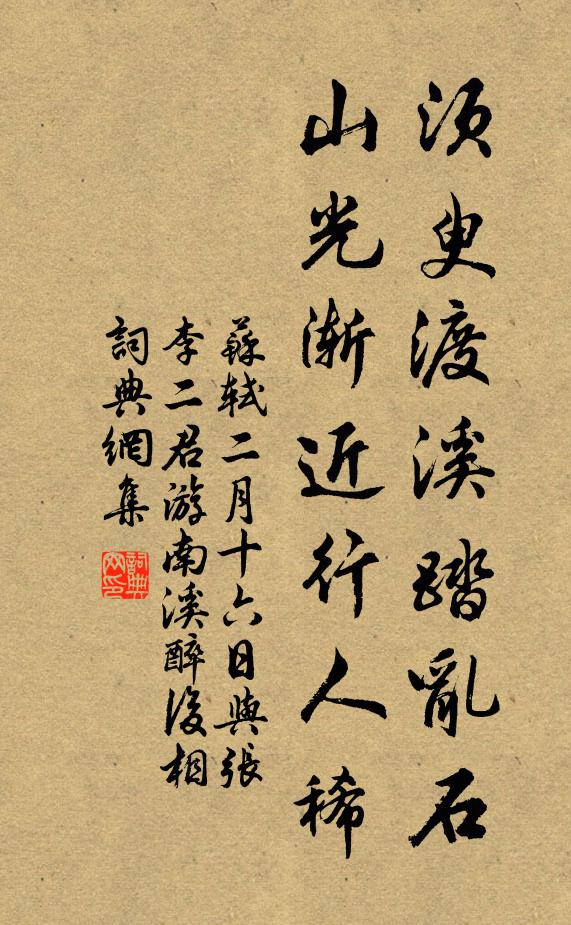 須臾渡溪踏亂石
山光漸近行人稀
蘇軾二月十六日與張
李二君游南溪醉後相
詞典網集
詞典
網印